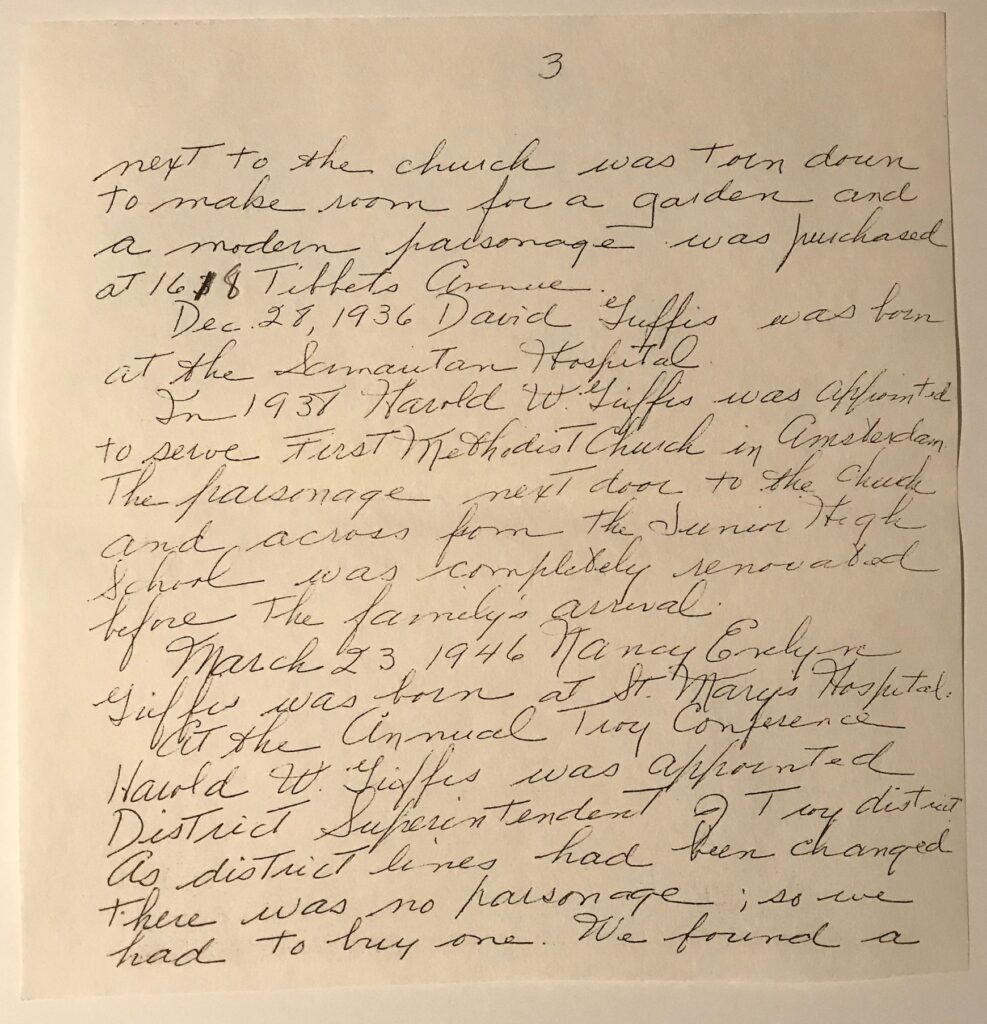 3
next to the church was torn down
to make room for a garden and
a modern parsonage was purchased
at 1618 Tibbets Avenue.
Dec. 28, 1936 David Giffis was born
at the Samaritan Hospital.
In 1937 Harold W. Giffis was appointed
to serve First Methodist Church in Amsterdam.
The parsonage next door to the church
and across from the Junior High
School was completely renovated
before the family's arrival.
March 23 1946 Nancy Evelyn
Giffis was born at St. Mary's Hospital.
At the Annual Troy Conference
Harold W. Giffis was appointed
District Superintendent of Troy district
As district lines had been changed
there was no parsonage; so we
had to buy one. We found a